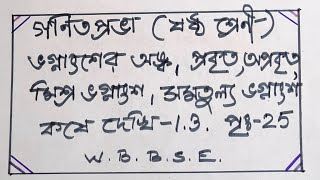 গণিতপ্রভা (ষষ্ঠ শ্রেণী-)
ভগ্নাংশের অঙ্ক, প্রকৃত, অপ্রকৃত,
মিশ্র ভগ্নাংশ, সমতুল্য ভগ্নাংশ,
কষে দেখি-1.3. পৃঃ-25
W.B.B.S.E.